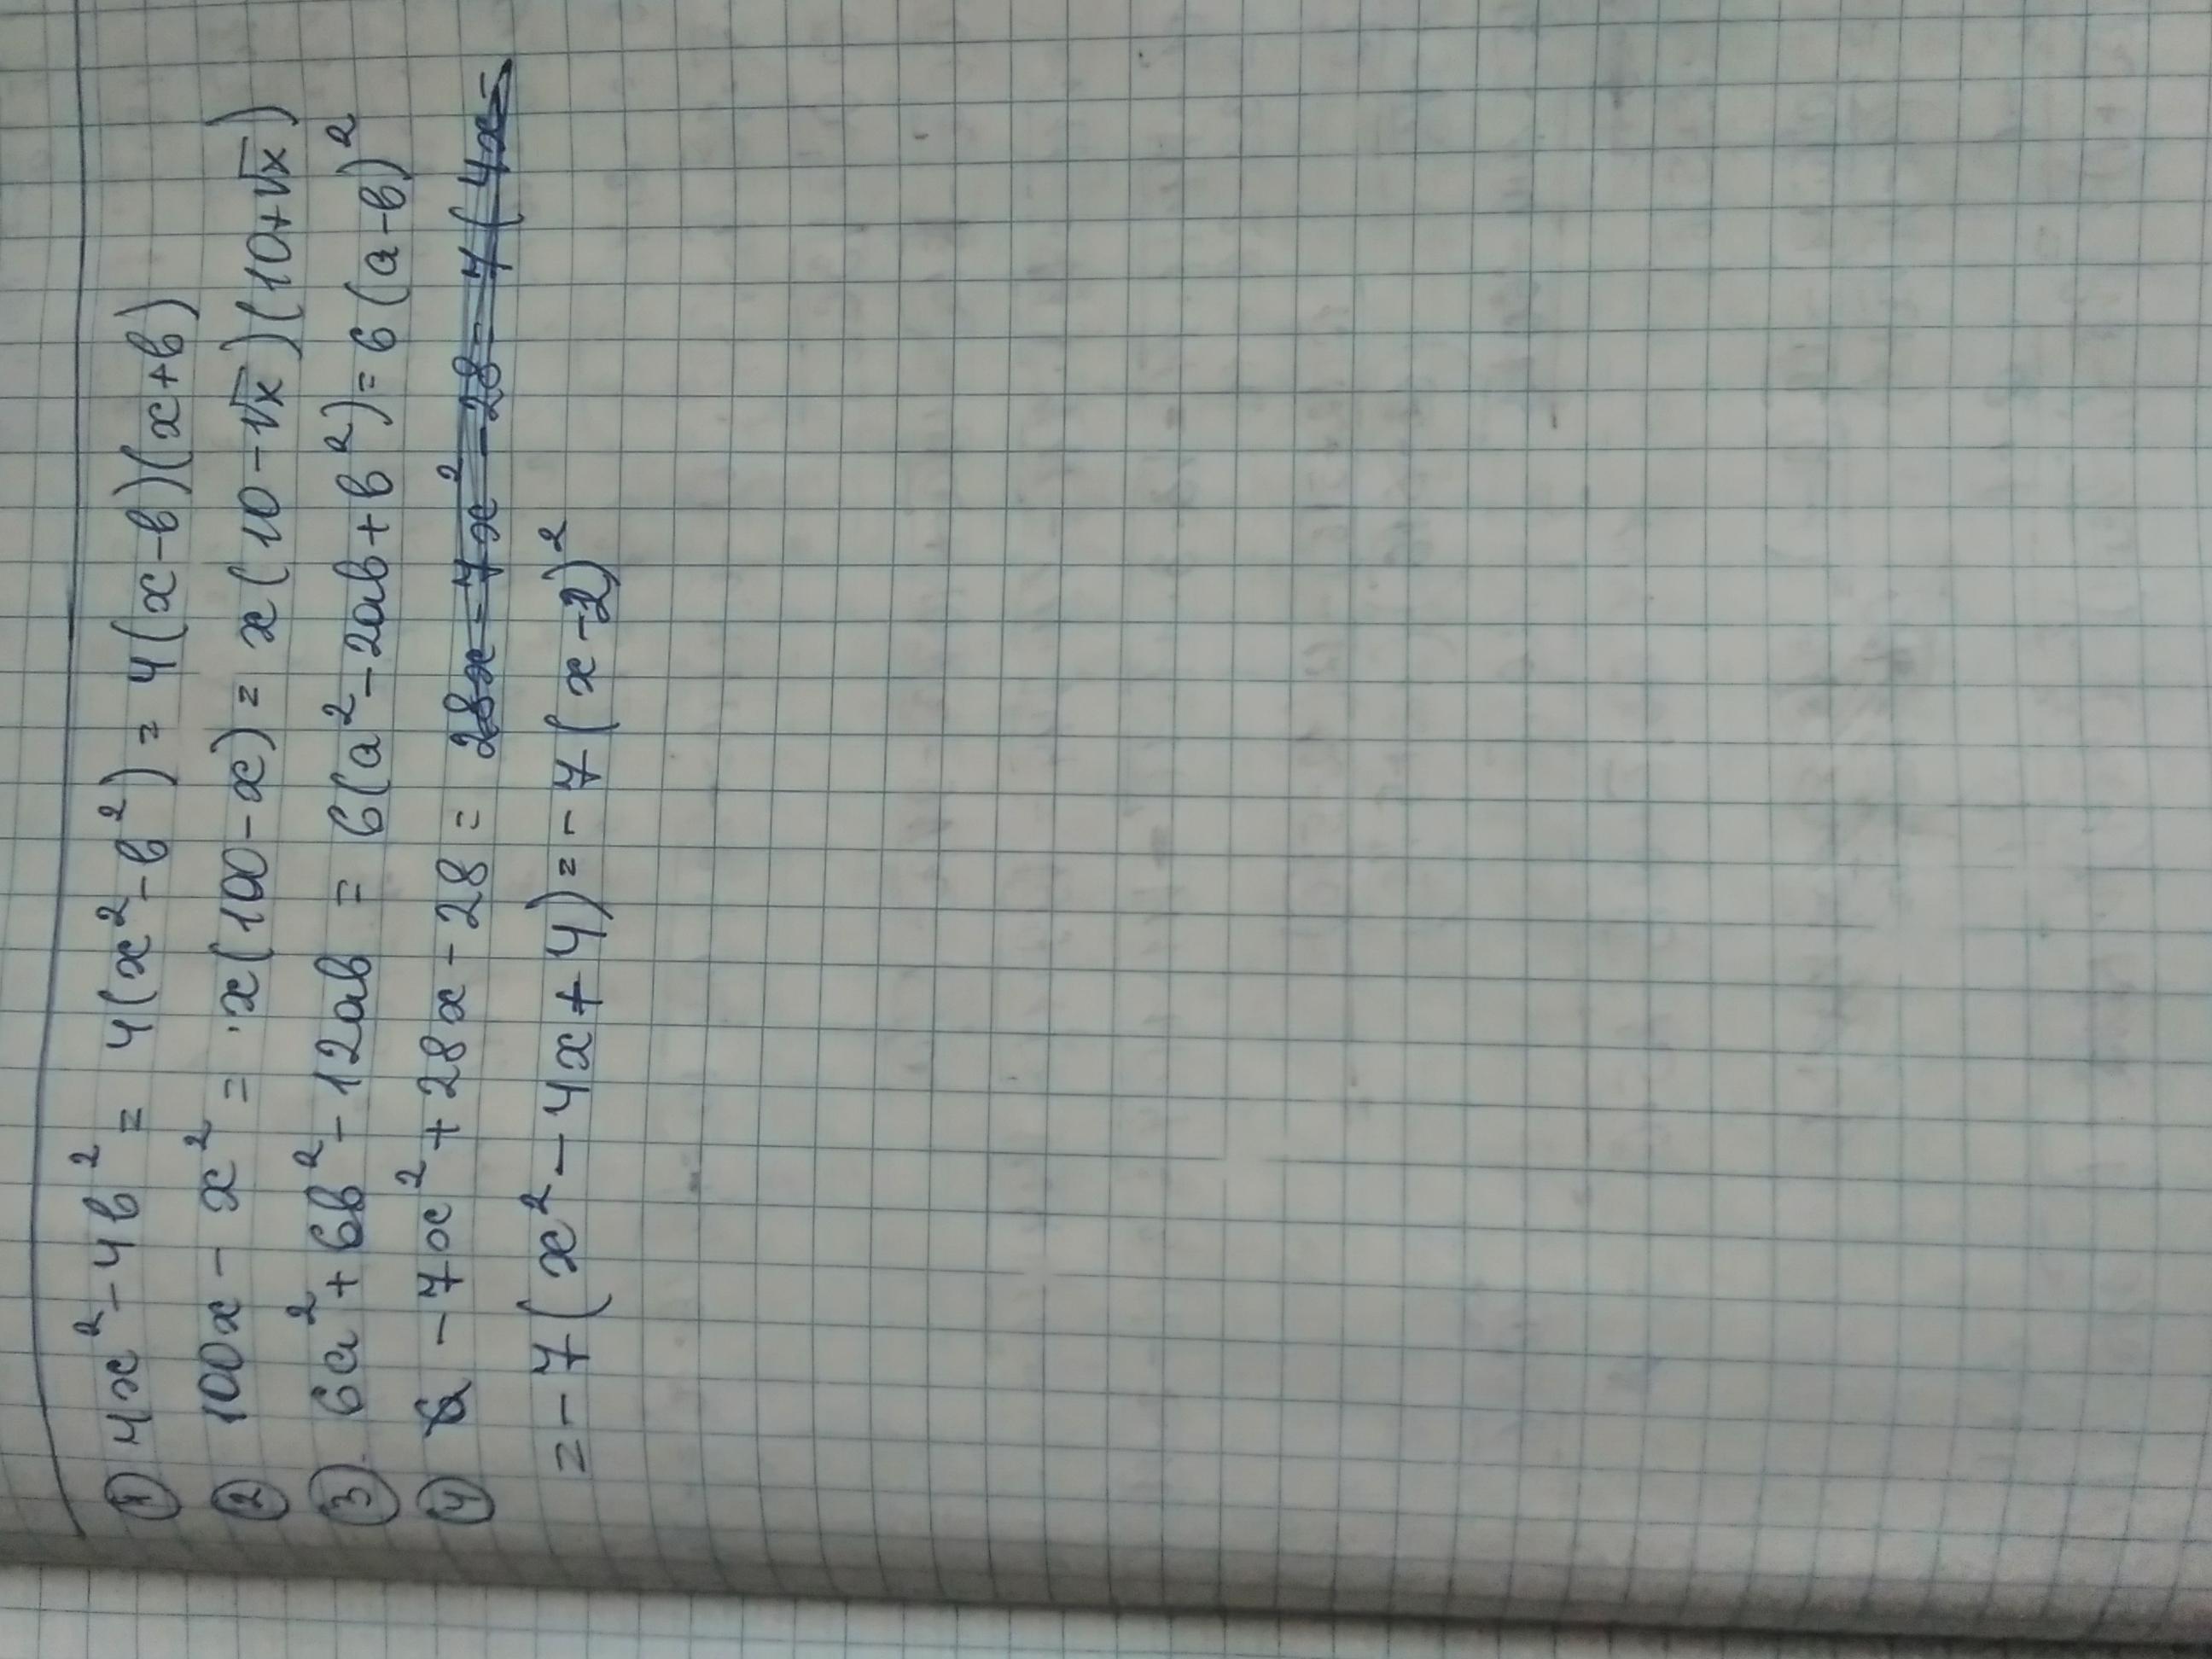 ① 4x² - 4b² = 4(x² - b²) = 4(x - b)(x + b)
② 100x - x² = x(100 - x) = x(10 - √x)(10 + √x)
③ 6a² + 6b² - 12ab = 6(a² - 2ab + b²) = 6(a - b)²
④ -7x² + 28x - 28 = 28x - 7x² - 28 = 7(4x -
= -7(x² - 4x + 4) = -7(x - 2)²